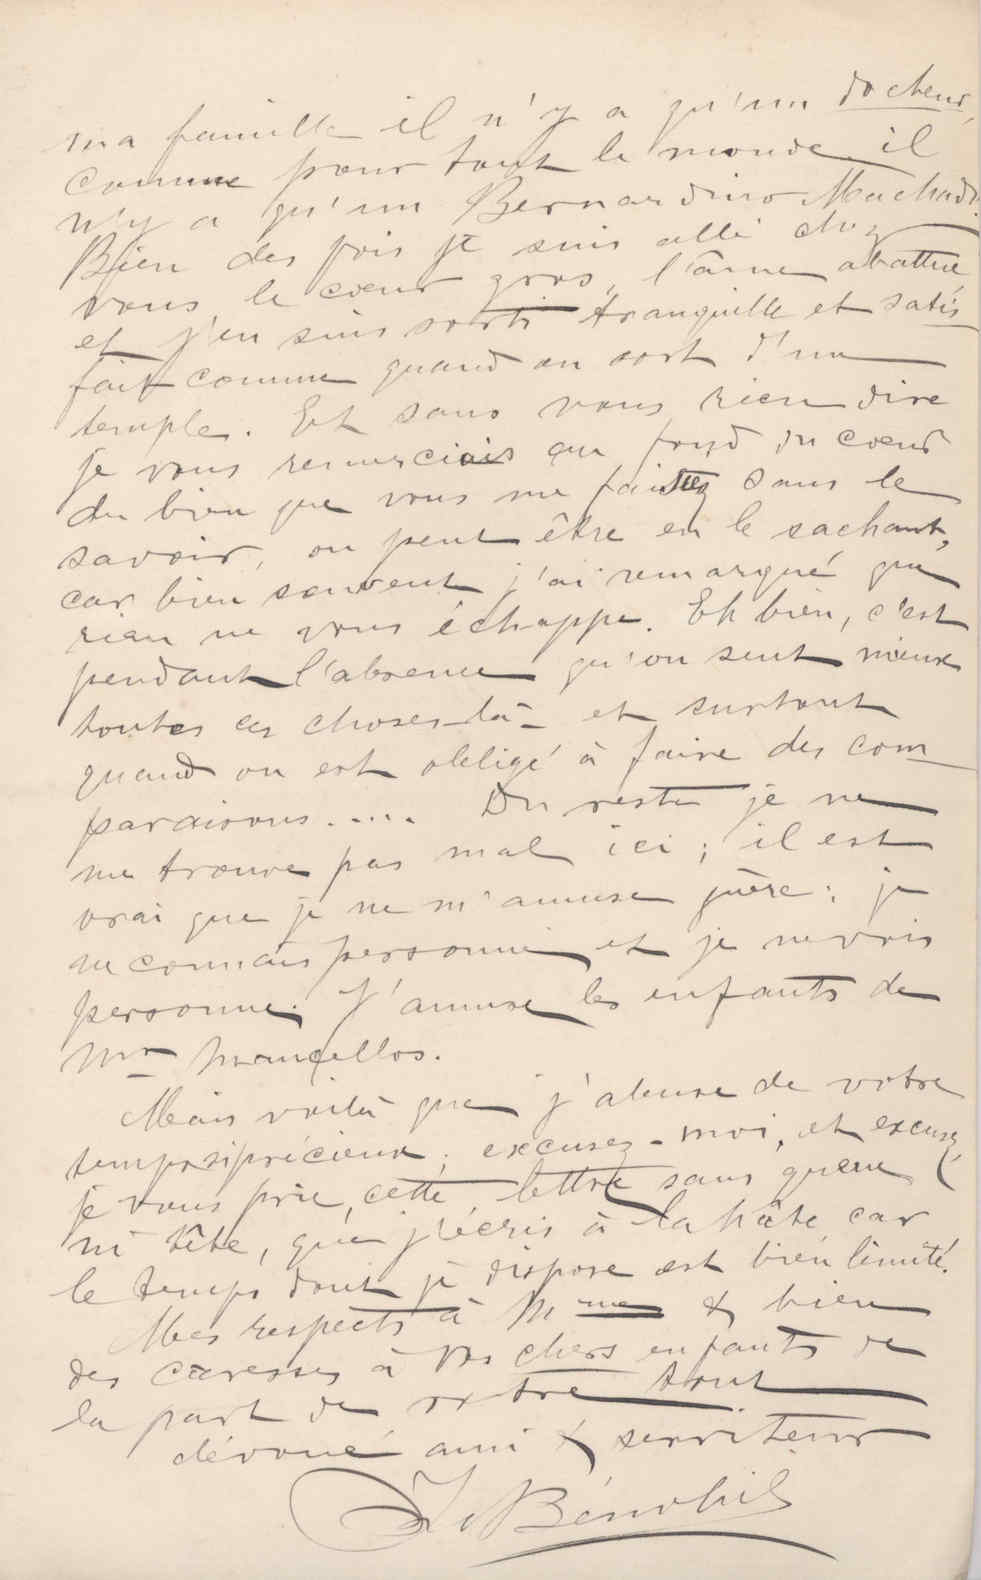 ma famille il n'y a qu'un docteur,
comme pour tout le monde il
n'y a qu'un Bernardino Machado.
Bien des fois je suis allé chez
vous le cœur gros, l'âme abattue
et j'en suis sorti tranquille et satis
fait comme quand on sort d'un
temple. Et sans vous rien dire
je vous remerciais au fond du cœur
du bien que vous me faisiez sans le
savoir, ou peut être en le sachant,
car bien souvent j'ai remarqué que
rien ne vous échappe. Eh bien, c'est
pendant l'absence qu'on sent mieux
toutes ces choses-là - et surtout
quand on est obligé à faire des com_
paraisons..... Du reste je ne
me trouve pas mal ici; il est
vrai que je ne m'amuse guère: je
ne connais personne et je ne vois
personne. J'amuse les enfants de
Mr
Mais voilà que j'abuse de votre
temps si précieux; excusez-moi, et excusez,
je vous prie, cette lettre sans queue
ni tête, que j'écris à la hâte car
le temps dont je dispose est bien limité.
Mes respects à Mme & bien
des caresses à vos chers enfants de
la part de votre tout
dévoué ami & serviteur